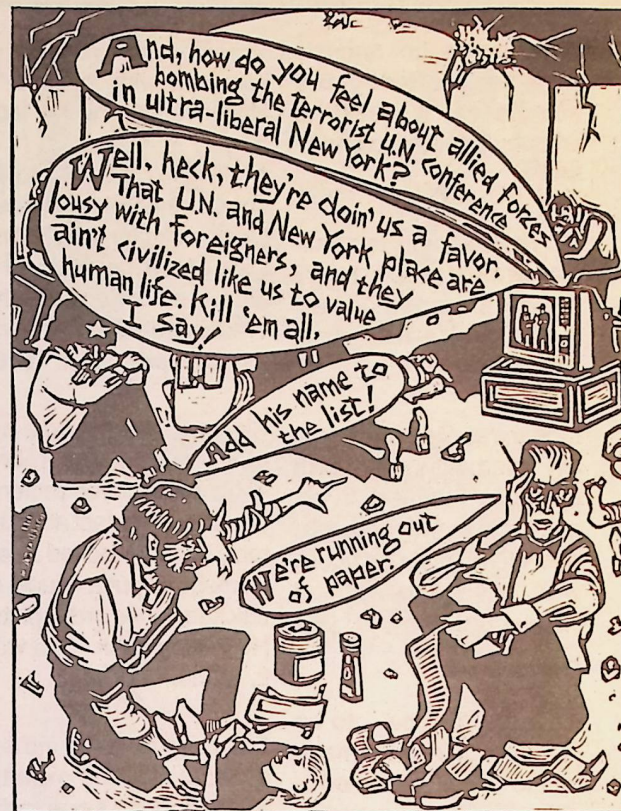 And, how do you feel about allied forces
bombing the terrorist U.N. conference
in ultra-liberal New York?
Well, heck, they're doin' us a favor.
That U.N. and New York place are
lousy with foreigners, and they
ain't civilized like us to value
human life. Kill 'em all,
I say!
Add his name to
the list!
We're running out
of paper.